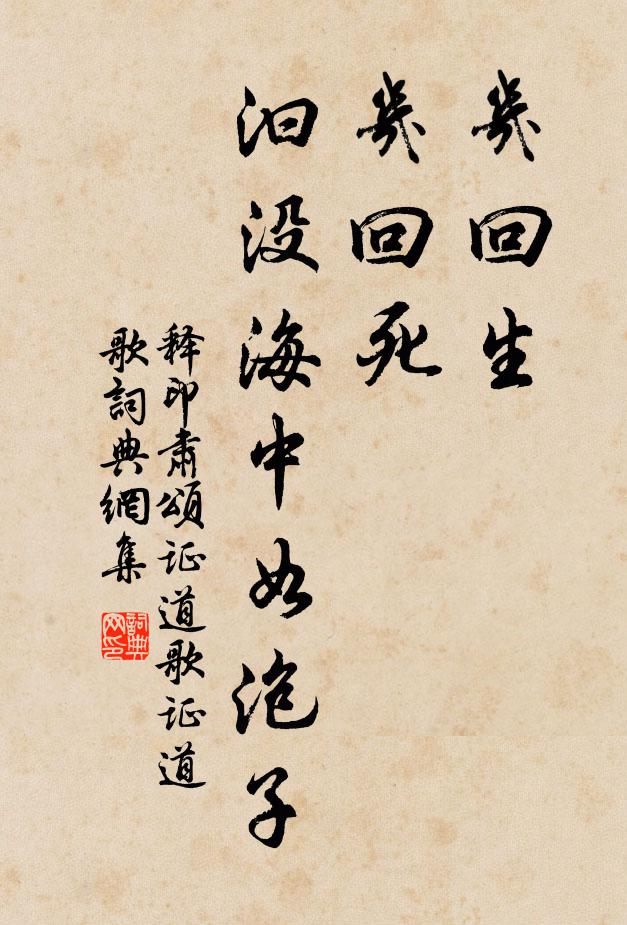 幾回生
幾回死
汩没海中如泡子
释印肃頌证道歌证道
歌詞典網集
詞典网印